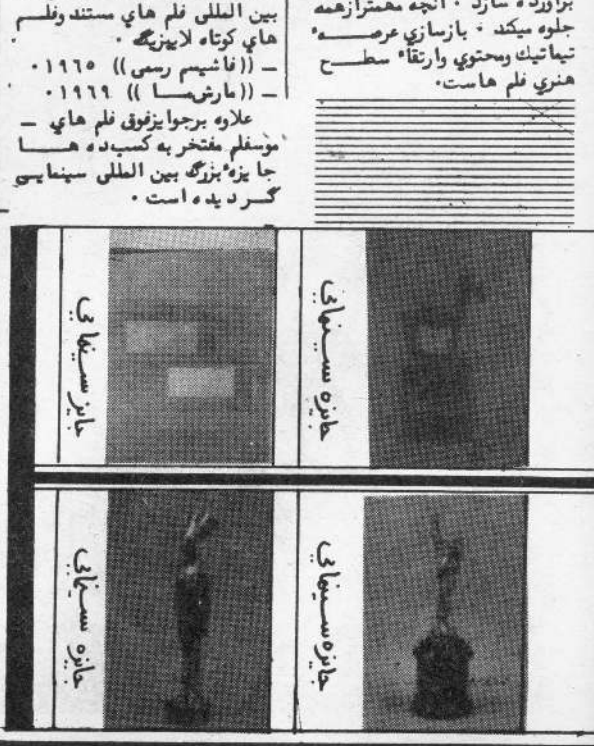 برآورده سازد ۰ آنچه مهمترازهمه
جلوه میکند ۰ بازسازي عرصــــهٔ
تیماتیك ومحتوي وارتقاءٔ سطـــح
هنري فلم هاست۰
بین المللی فلم هاي مستند وفلــم
هاي کوتاه لایپزیگ ۰
ــ ((فاشیسم رسمی)) ۱۹٦٥ ۰
ــ ((مارش‌ســـا )) ۱۹٦۹ ۰
علاوه برجوایزفوق فلم هاي ــ
موسفلم مفتخر به کسب ده هــــا
جا یزهٔ بزرگ بین المللی سینمایـی
گــردیده است ۰
جایزسـینمایي
جایزه ســینمائي
جایزه ســینمایي
جایزه ســینمایي